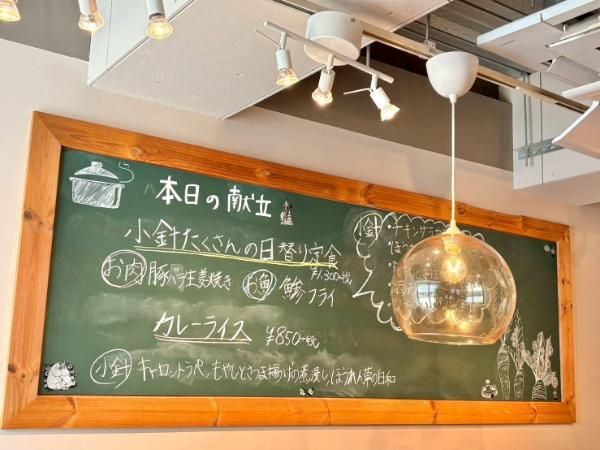 本日の献立
小針たくさんの日替り定食
¥1,300+税
お肉 豚バラ生姜焼き お魚 鯵フライ
カレーライス ¥850+税
小針 キャロットラペ、もやしとさつま揚げの煮浸し、ほうれん草の日和
小針 ・チキンサラ
・ほう